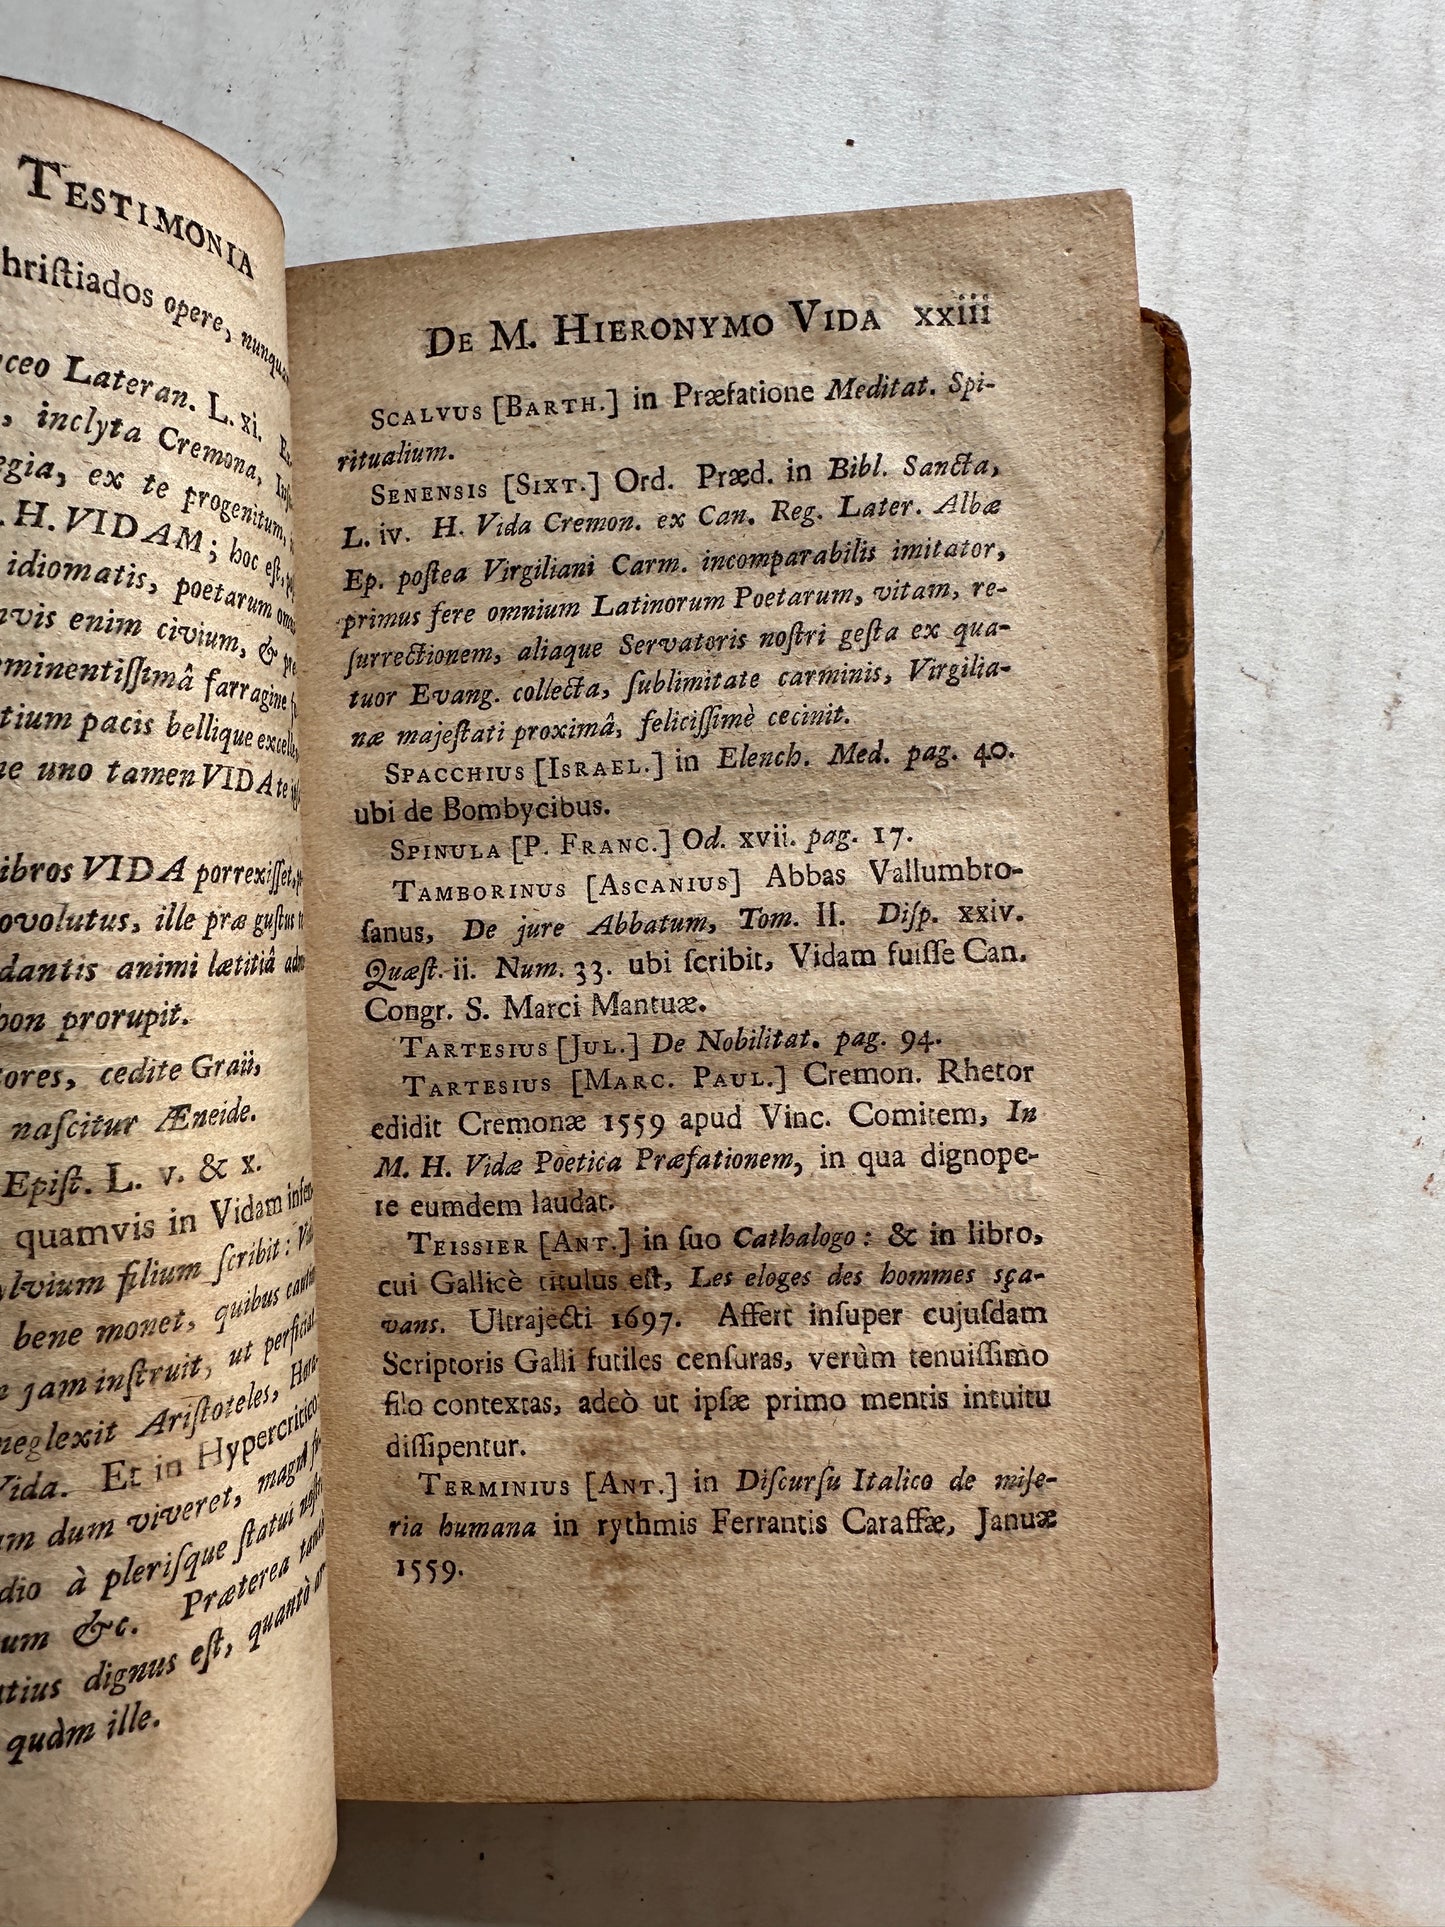 TESTIMONIA
hriſtiados opere,
ceo Lateran. L. xi.
, inclyta Cremona,
egia, ex te progenitum,
. H. VIDAM; hoc eſt,
idiomatis, poetarum
nvis enim civium, &
minentiſſimâ farragine
tium pacis bellique
ne uno tamen VIDA te
ibros VIDA porrexiſſet,
ovolutus, ille præ guſtus
dantis animi lætitiâ
bon prorupit.
tores, cedite Graii,
naſcitur Æneide.
Epiſt. L. v. & x.
quamvis in Vidam
lvium filium ſcribit:
bene monet, quibus
n jam inſtruit, ut
neglexit Ariſtoteles,
Vida. Et in Hypercritico
um dum viveret, magna
dio à pleriſque ſtatui
um &c. Præterea
tius dignus eſt, quantò
quàm ille.
DE M. HIERONYMO VIDA xxiii
SCALVUS [BARTH.] in Præfatione Meditat. Spi-
ritualium.
SENENSIS [SIXT.] Ord. Præd. in Bibl. Sancta,
L. iv. H. Vida Cremon. ex Can. Reg. Later. Albæ
Ep. poſtea Virgiliani Carm. incomparabilis imitator,
primus fere omnium Latinorum Poetarum, vitam, re-
ſurrectionem, aliaque Servatoris noſtri geſta ex qua-
tuor Evang. collecta, ſublimitate carminis, Virgilia-
næ majeſtati proximâ, feliciſſimè cecinit.
SPACCHIUS [ISRAEL.] in Elench. Med. pag. 40.
ubi de Bombycibus.
SPINULA [P. FRANC.] Od. xvii. pag. 17.
TAMBORINUS [ASCANIUS] Abbas Vallumbro-
ſanus, De jure Abbatum, Tom. II. Diſp. xxiv.
Quæſt. ii. Num. 33. ubi ſcribit, Vidam fuiſſe Can.
Congr. S. Marci Mantuæ.
TARTESIUS [JUL.] De Nobilitat. pag. 94.
TARTESIUS [MARC. PAUL.] Cremon. Rhetor
edidit Cremonæ 1559 apud Vinc. Comitem, In
M. H. Vidæ Poetica Præfationem, in qua dignope-
re eumdem laudat.
TEISSIER [ANT.] in ſuo Cathalogo: & in libro,
cui Gallicè titulus eſt, Les eloges des hommes sça-
vans. Ultrajecti 1697. Affert inſuper cujuſdam
Scriptoris Galli futiles cenſuras, verùm tenuiſſimo
filo contextas, adeò ut ipſæ primo mentis intuitu
diſſipentur.
TERMINIUS [ANT.] in Diſcurſu Italico de miſe-
ria humana in rythmis Ferrantis Caraffæ, Januæ
1559.